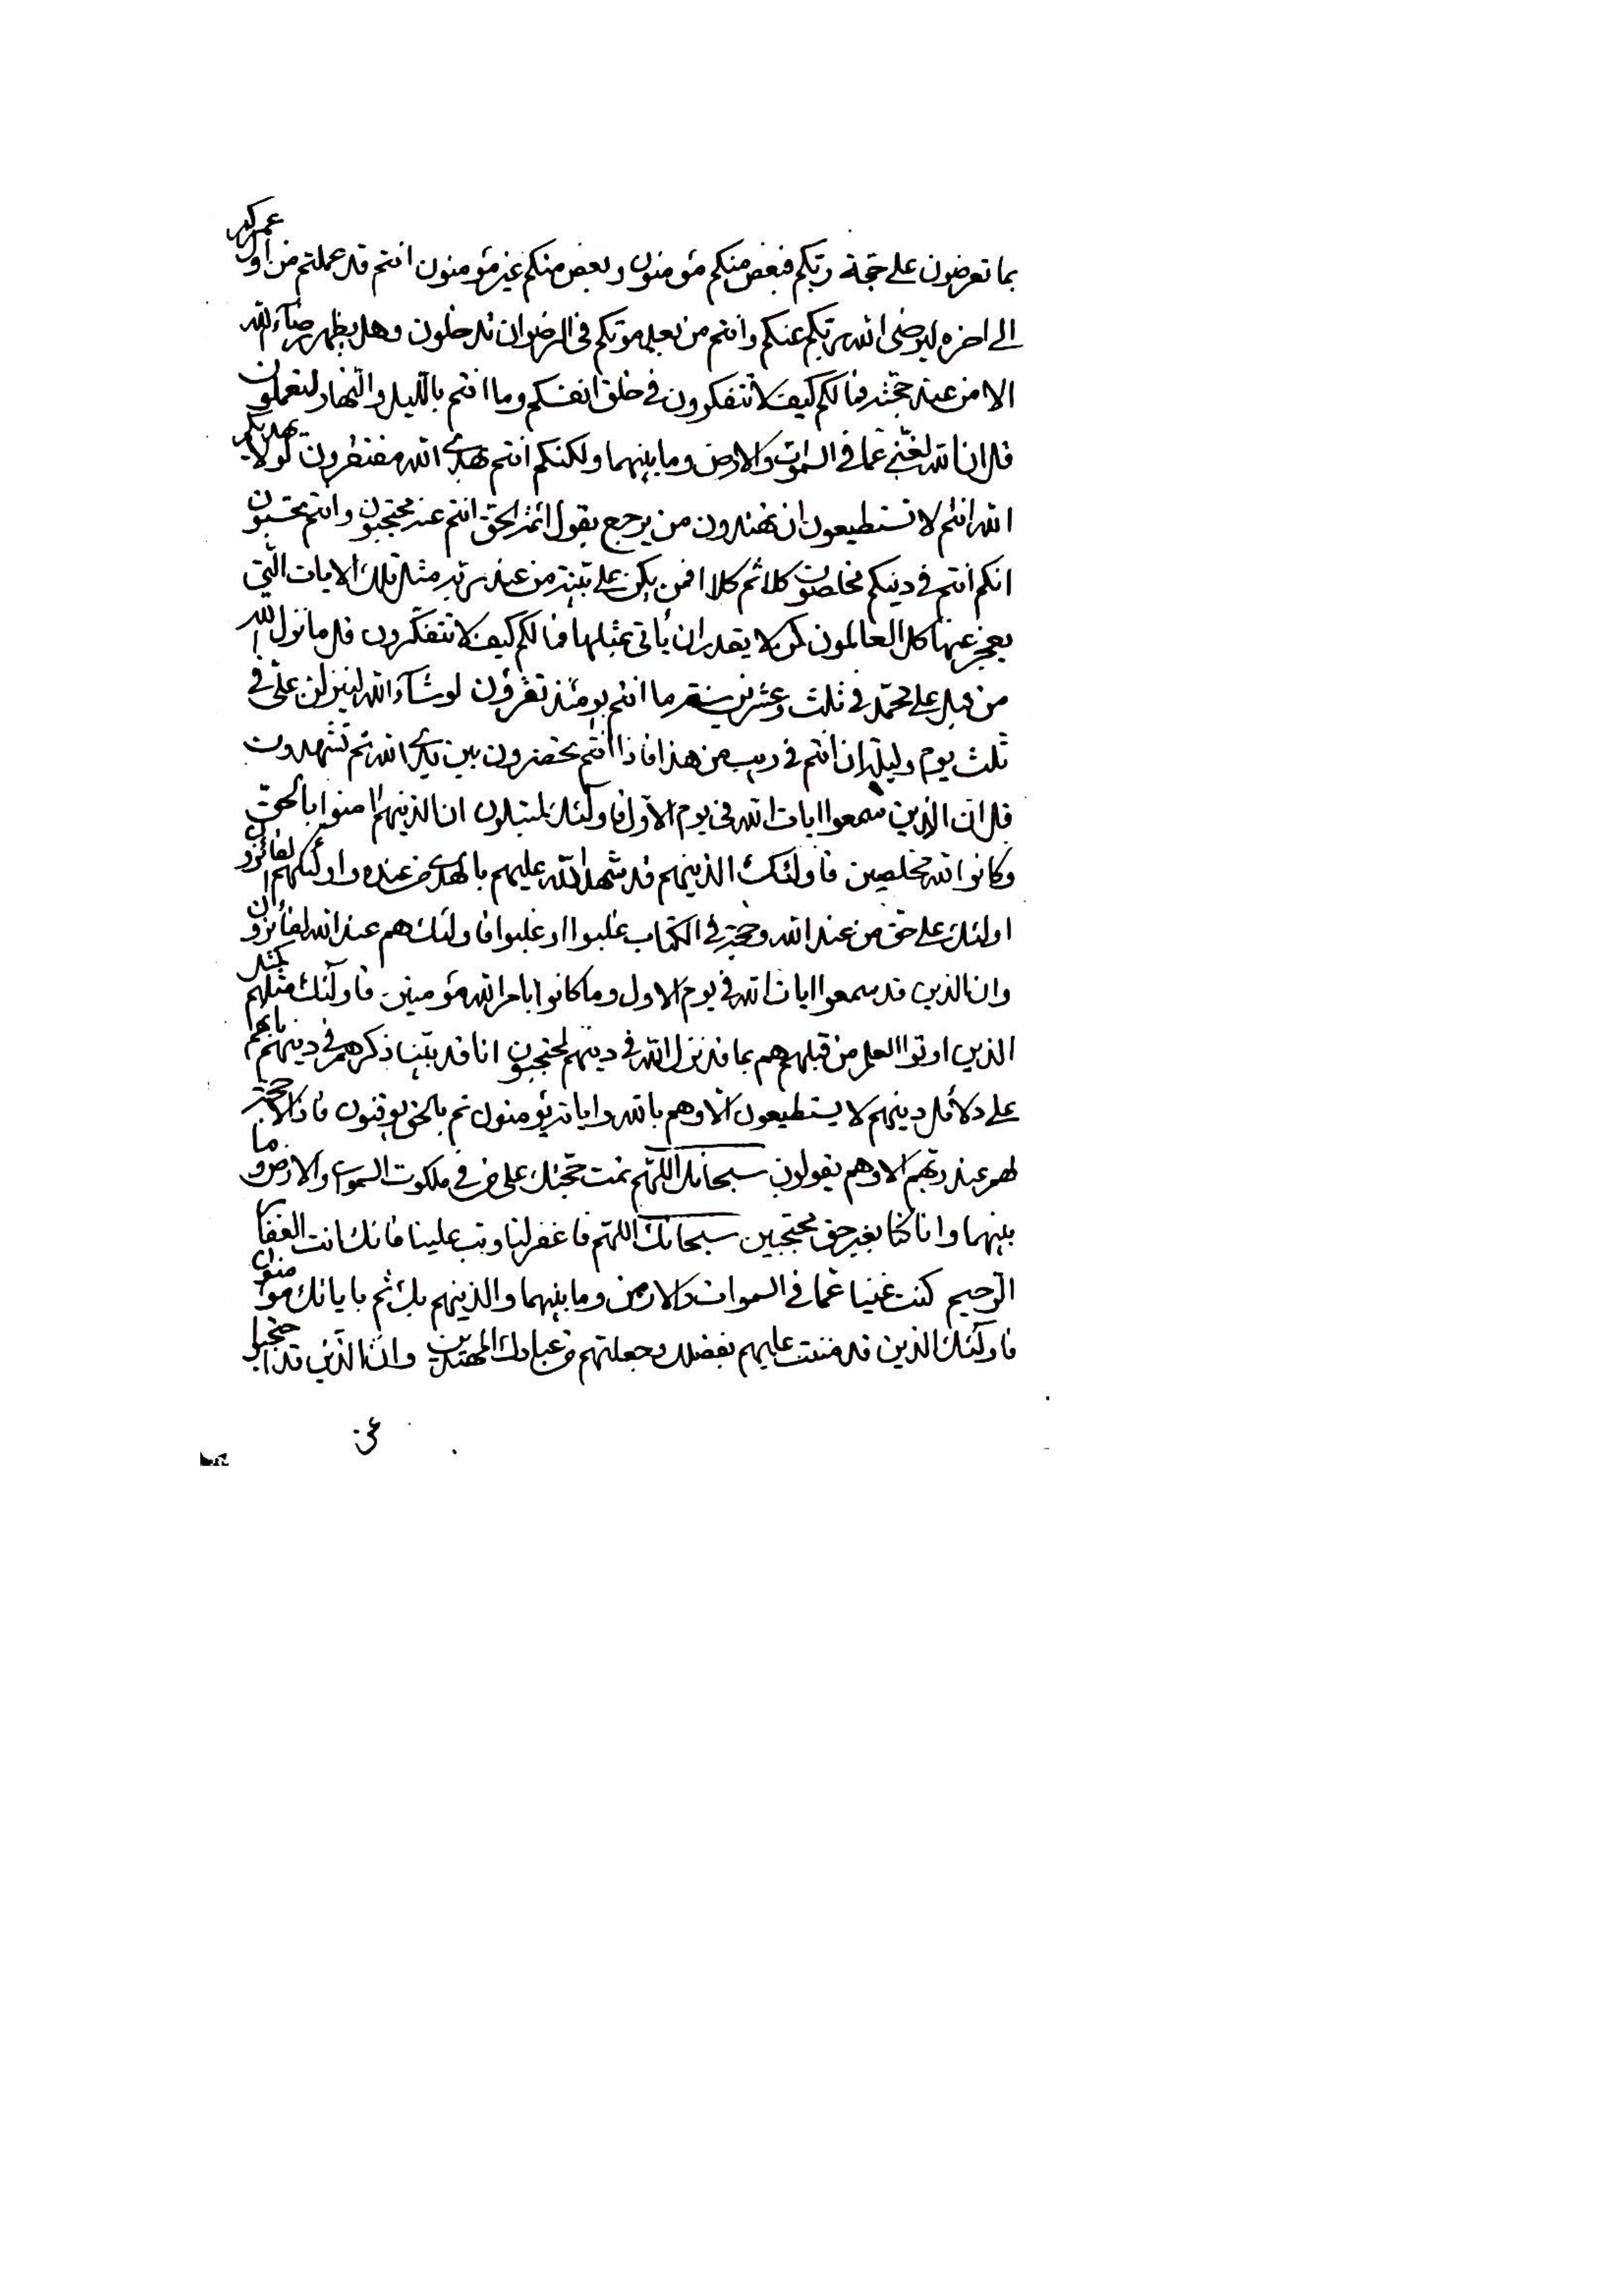 بما تعرضون على حجة ربكم فبعض منكم مؤمنون وبعض منكم غير مؤمنون انتم قد عملتم من اول عمركم
الى اخره ليرضى الله ربكم عنكم وانتم من بعد موتكم فى الرضوان تدخلون وهل يظهر رضآء الله
الا من عند حجته فما لكم كيف لا تتفكرون فى خلق انفسكم وما انتم بالليل والنهار لتعملون
قل ان الله لغنى عما فى السموات والارض وما بينهما ولكنكم انتم بهدى الله مفتقرون لولا يهديكم
الله انتم لا تستطيعون ان تهتدون من يرجع بقول ائمة الحق انتم عنه محتجبون وانتم تحسبون
انكم انتم فى دينكم مخلصون كلا ثم كلا افمن يكن على بينة من عند ربه مثل تلك الايات التى
يعجز عنها كل العالمون كمن لا يقدر ان يأتى بمثلها فما لكم كيف لا تتفكرون قل ما نزل الله
من قبل على محمد فى ثلث وعشرين سنة ما انتم يومئذ تفرقون لو شآء الله لينزلن على فى
ثلث يوم وليلة ان انتم فى ريب من هذا فاذا انتم تحضرون بين يدى الله ثم تشهدون
قل ان الذين سمعوا ايات الله فى يوم الاول فاولئك لمبتلون ان الذينهم امنوا بالحق
وكانوا لله مخلصين فاولئك الذينهم قد شهد الله عليهم بالهدى من عنده واولئكهم الفائزون
اولئك على حق من عند الله وحجة فى الكتاب غلبوا او غلبوا فاولئك هم عند الله لفائزون
وان الذين قد سمعوا ايات الله فى يوم الاول وما كانوا بامر الله مؤمنين فاولئك مثلهم كمثل
الذين اوتوا العلم من قبلهم هم بما قد نزل الله فى دينهم لمحتجبون انا قد بينا ذكرهم فى دينهم بانهم
على دلائل دينهم لا يستطيعون الا وهم بالله واياته يؤمنون ثم بالحق يوقنون فاذا لا حجة
لهم عند ربهم الا وهم يقولون سبحانك اللهم تمت حجتك على من فى ملكوت السموات والارض وما
بينهما وانا كنا بغير حق محتجبين سبحانك اللهم فاغفر لنا وتب علينا فانك انت الغفار
الرحيم كنت غنيا عما فى السموات والارض وما بينهما والذينهم بك ثم باياتك مؤمنون
فاولئك الذين قد مننت عليهم بفضلك وجعلتهم من عبادك المهتدين وان الذين قد احتجبوا
عن